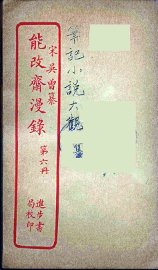 宋吳曾纂
能改齋漫錄
第六冊
進步書
局校印
筆記小說大觀